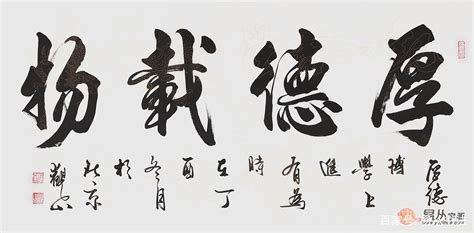 厚德載物
厚德
博
學上
進
有為
時
在丁
酉
冬月
於
北京